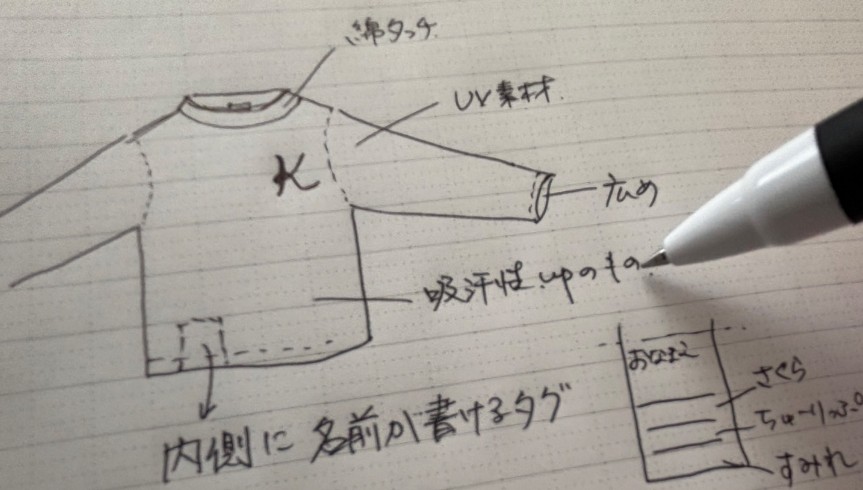 綿タッチ
UV素材
K
広め
吸汗性upのもの
内側に名前が書けるタグ
おなまえ
さくら
ちゅーりっぷ
すみれ